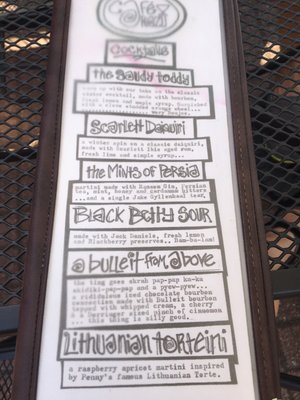 Cafe
Cocktails
the Saudy toddy
winter cocktail, made with bourbon,
fresh lemon and maple syrup. Garnished
with a clove studded orange wheel...
Scarlett Daquiri
a winter spin on a classic daiquiri,
made with Scarlett Ibis aged rum,
fresh lime and simple syrup...
the Mints of Persia
martini made with Ransom Gin, Persian
tea, mint, honey and cardamom bitters
...and a single Jake Gyllenhaal tear.
Black Betty Sour
made with Jack Daniels, fresh lemon
and Blackberry preserves.. Bam-ba-lam!
a Bulleit From above
the ting goes skrah pap-pap ka-ka
skidiki-pap-pap and a pyew-pyew...
a ridiculous iced chocolate bourbon
concoction made with Bulleit bourbon
topped with whipped cream, a cherry
& a leprauger sized pinch of cinnamon
... this thing is silly good.
Lithuanian torteini
a raspberry apricot martini inspired
by Penny's famous Lithuanian Torte.